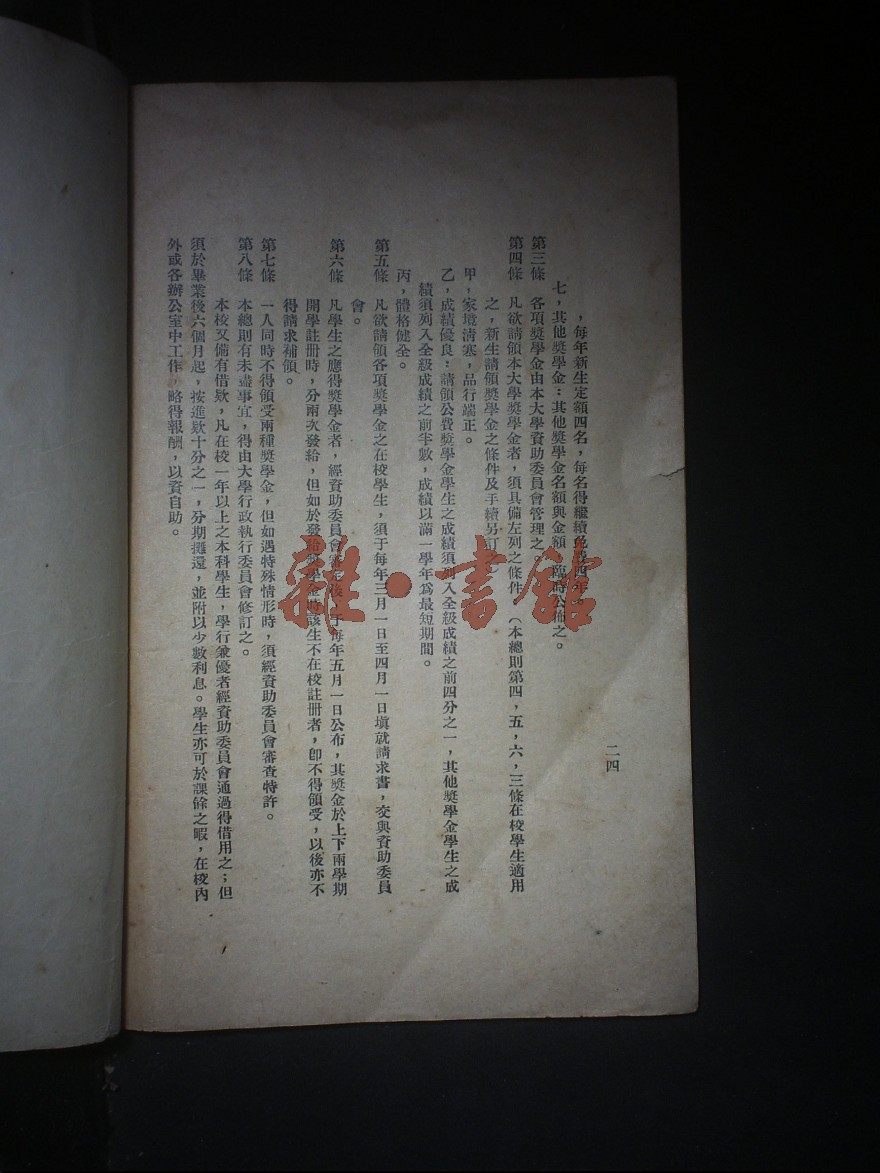 二四
，每年新生定額四名，每名得繼續免費四年。
七，其他獎學金：其他獎學金名額與金額，臨時公佈之。
第三條　各項獎學金由本大學資助委員會管理之。
第四條　凡欲請領本大學獎學金者，須具備左列之條件（本總則第四，五，六，三條在校學生適用
之，新生請領獎學金之條件及手續另訂
甲，家境清寒，品行端正。
乙，成績優良：請領公費獎學金學生之成績須列入全級成績之前四分之一，其他獎學金學生之成
績須列入全級成績之前半數，成績以滿一學年爲最短期間。
丙，體格健全。
第五條　凡欲請領各項獎學金之在校學生，須于每年三月一日至四月一日塡就請求書，交與資助委員
會。
第六條　凡學生之應得獎學金者，經資助委員會審定後，于每年五月一日公布，其獎金於上下兩學期
開學註册時，分兩次發給，但如於發給獎學金時該生不在校註册者，卽不得領受，以後亦不
得請求補領。
第七條　一人同時不得領受兩種獎學金，但如遇特殊情形時，須經資助委員會審查特許。
第八條　本總則有未盡事宜，得由大學行政執行委員會修訂之。
本校又備有借欵，凡在校一年以上之本科學生，學行兼優者經資助委員會通過得借用之；但
須於畢業後六個月起，按進欵十分之一，分期攤還，並附以少數利息。學生亦可於課餘之暇，在校內
外或各辦公室中工作，略得報酬，以資自助。
雜·書館